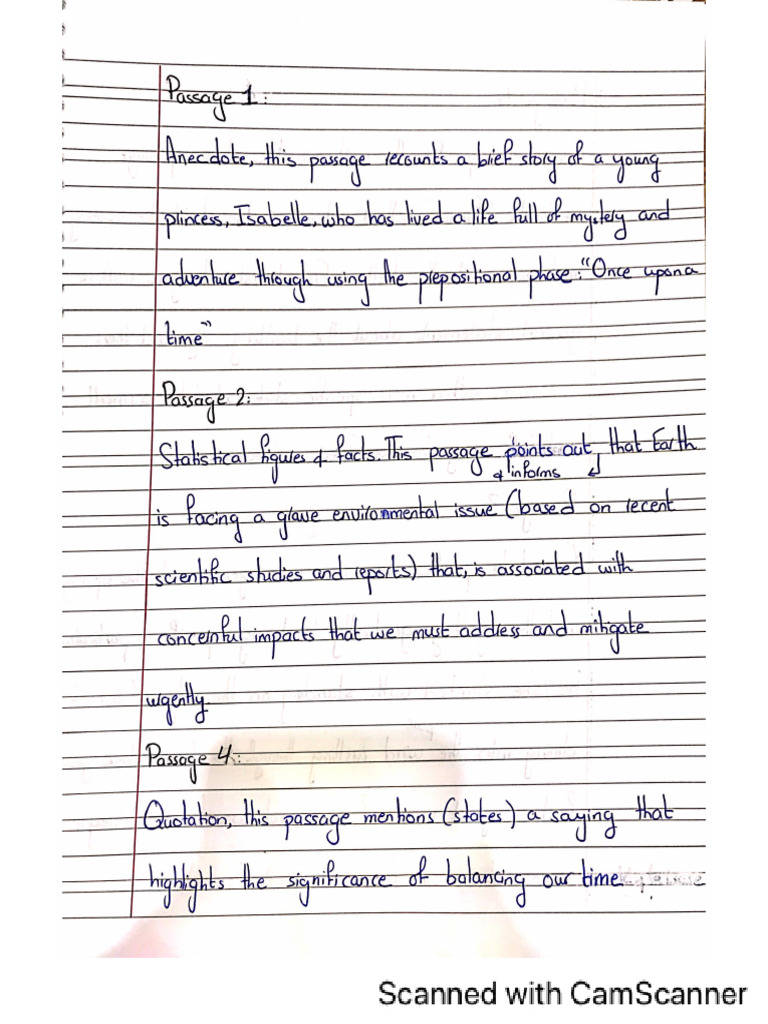 Passage 1:
Anecdote, this passage recounts a brief story of a young
princess, Isabelle, who has lived a life full of mystery and
adventure through using the prepositional phase: "Once upon a
time"
Passage 2:
Statistical figures & facts. This passage points out, that Earth
& informs
is facing a grave environmental issue (based on recent
scientific studies and reports) that, is associated with
concernful impacts that we must address and mitigate
urgently.
Passage 4:
Quotation, this passage mentions (states) a saying that
highlights the significance of balancing our time
Scanned with CamScanner